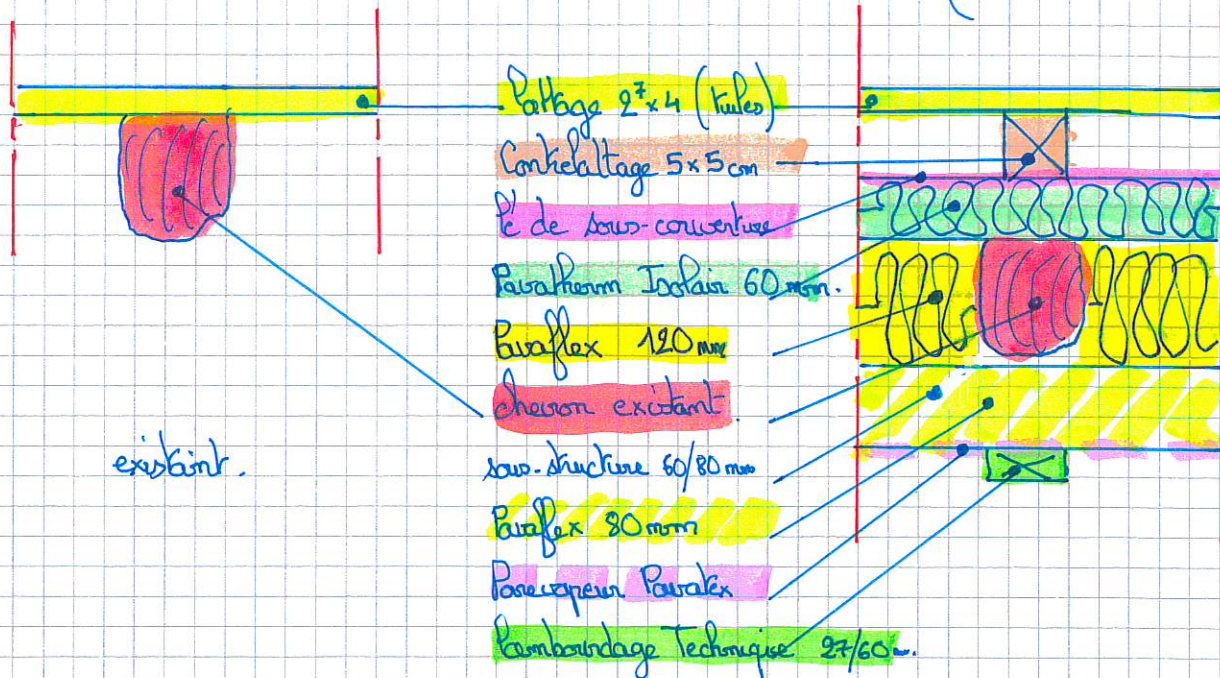 Lattage 2⁷ x 4 (tuiles)
Contrelattage 5 x 5 cm
lé de sous-couverture
Pavatherm Isolair 60 mm.
Pavaflex 120 mm
chevron existant.
existant.
sous-structure 60/80 mm
Pavaflex 80 mm
Parevapeur Pavatex
Lambourdage Technique 27/60